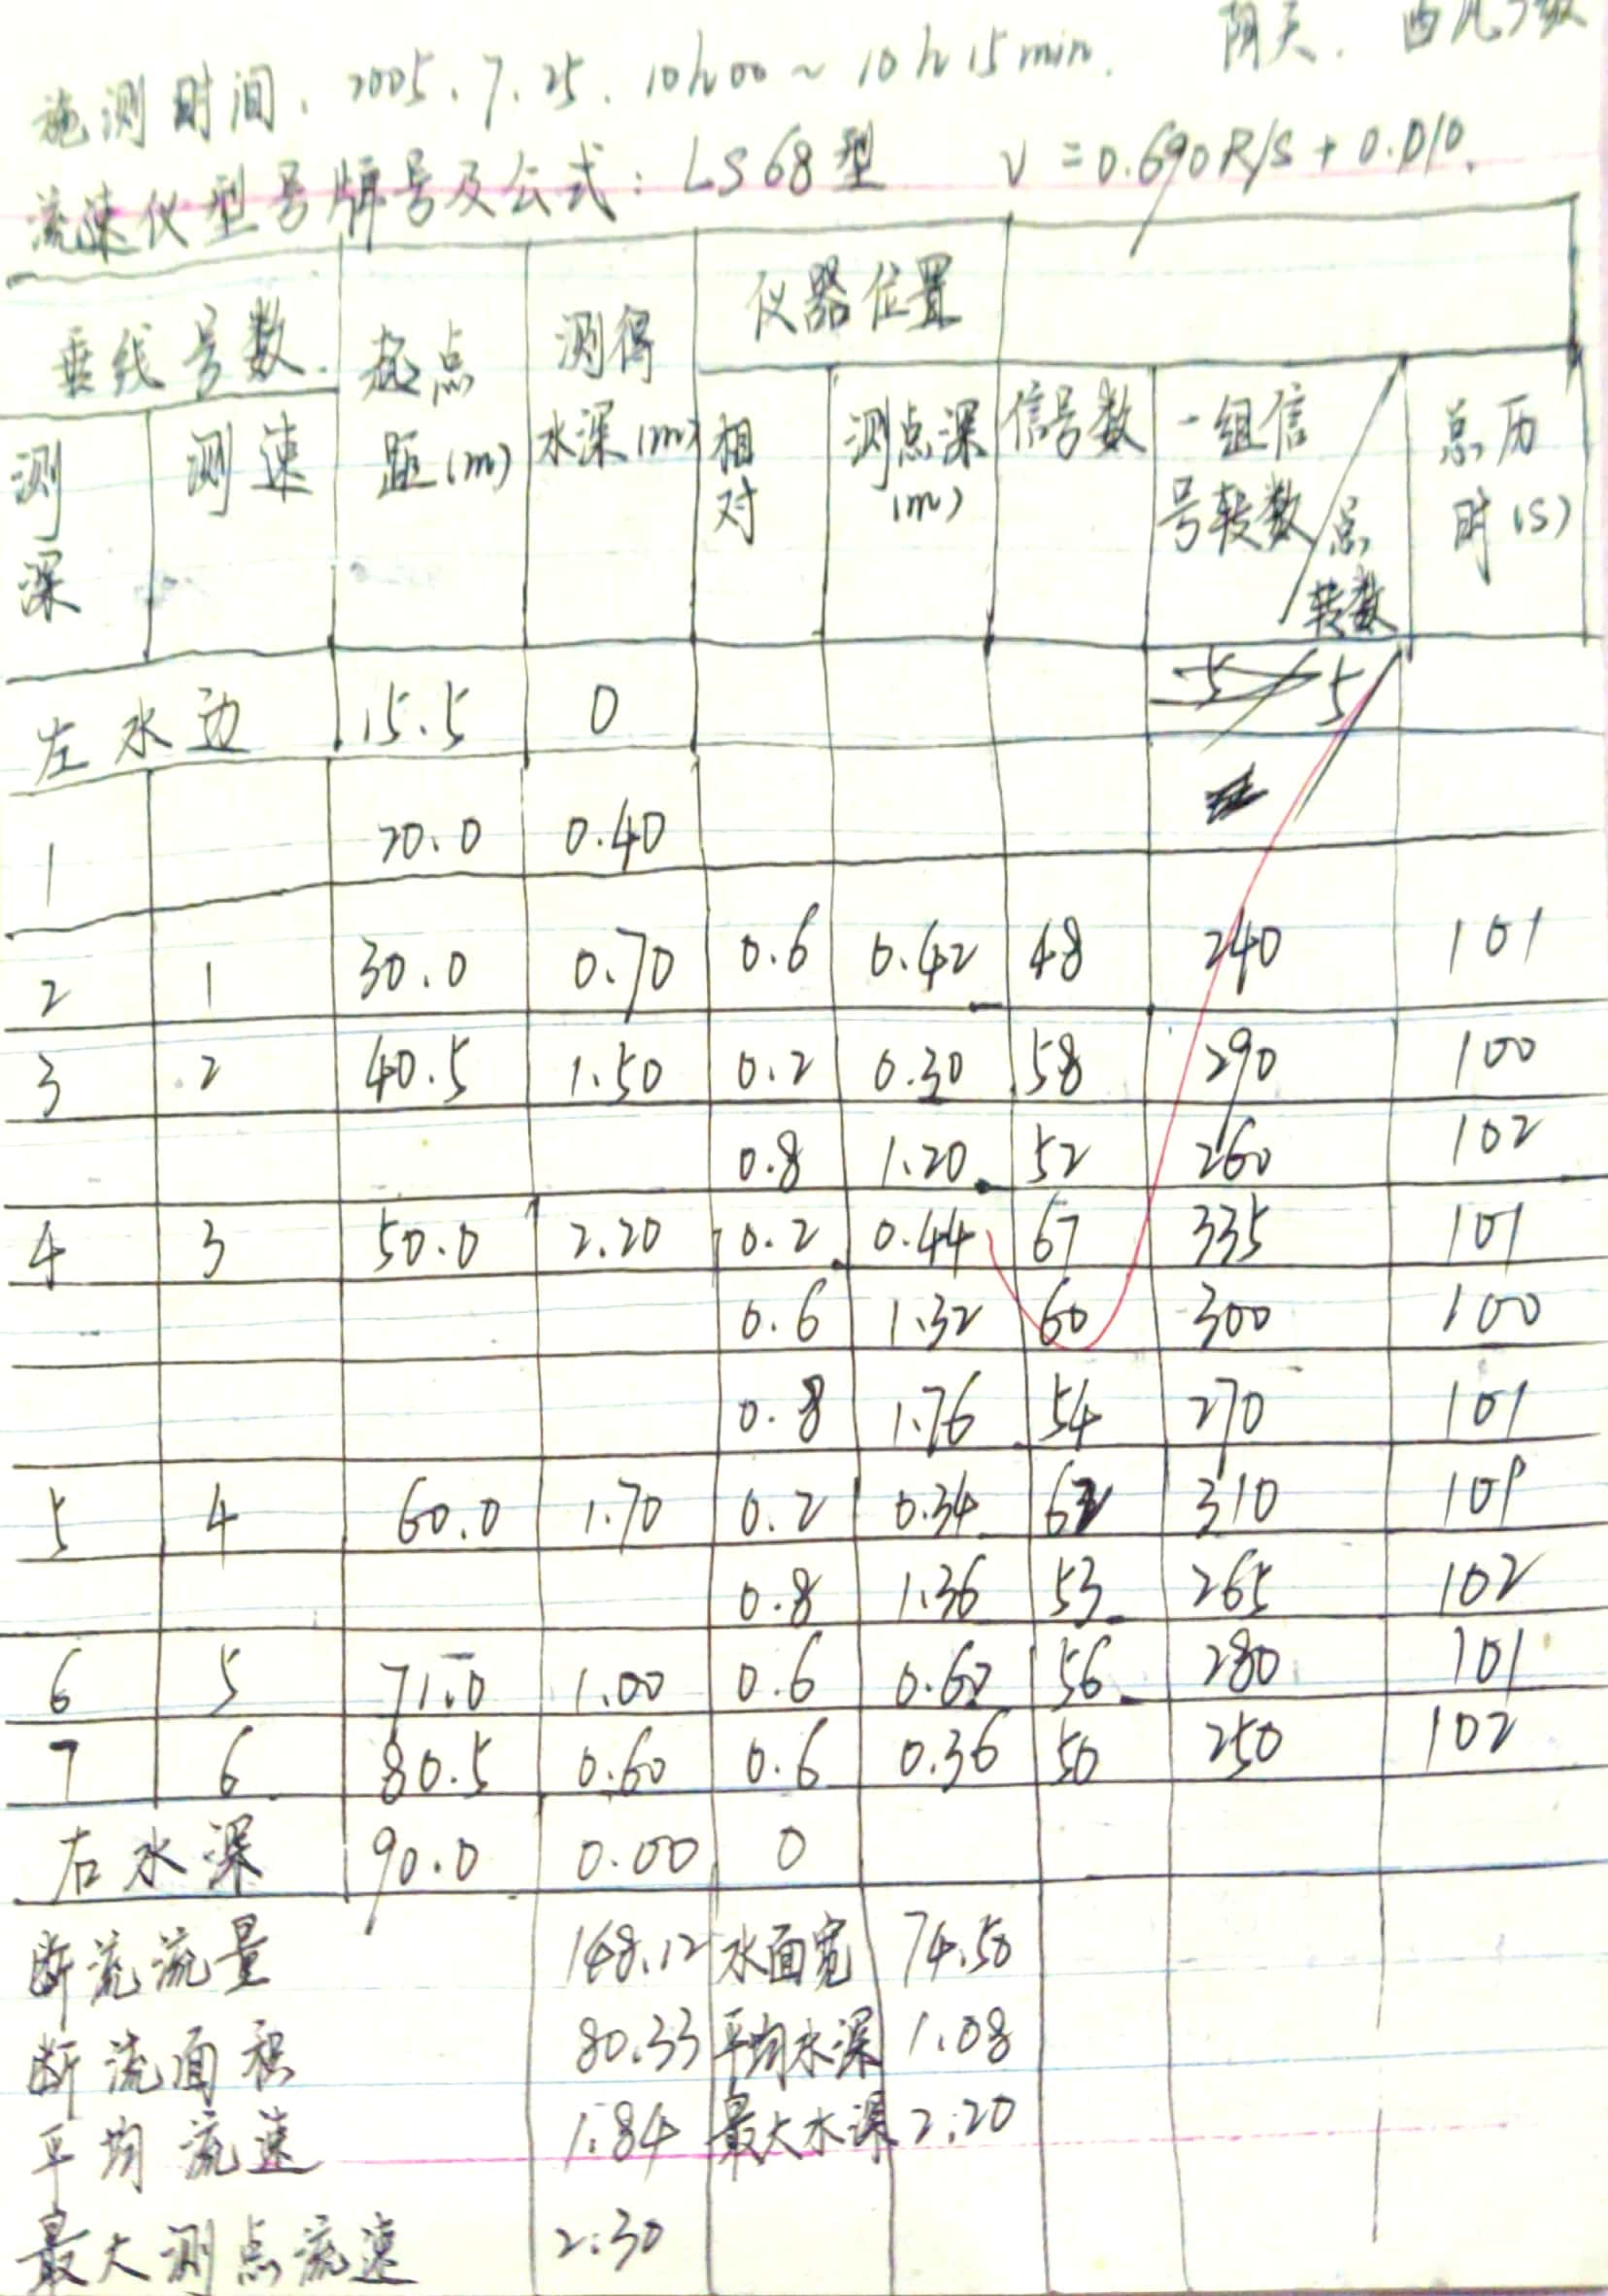 施测时间. 2005.7.25. 10h00~10h15min. 阴天.
流速仪型号牌号及公式: LS68型 V=0.690R/S+0.010.
垂线号数. 起点距(m) 测得水深(m) 仪器位置
测深 测速 相对 测点深(m) 信号数 一组信号转数/总转数 总历时(s)
左水边 15.5 0 5
1 20.0 0.40
2 1 30.0 0.70 0.6 0.42 48 240 101
3 2 40.5 1.50 0.2 0.30 58 290 100
0.8 1.20 52 260 102
4 3 50.0 2.20 0.2 0.44 67 335 101
0.6 1.32 60 300 100
0.8 1.76 54 270 101
5 4 60.0 1.70 0.2 0.34 62 310 101
0.8 1.36 53 265 102
6 5 71.0 1.00 0.6 0.60 56 280 101
7 6 80.5 0.60 0.6 0.36 50 250 102
右水深 90.0 0.00 0
断流流量 148.12 水面宽 74.50
断流面积 80.33 平均水深 1.08
平均流速 1.84 最大水深 2.20
最大测点流速 2.30